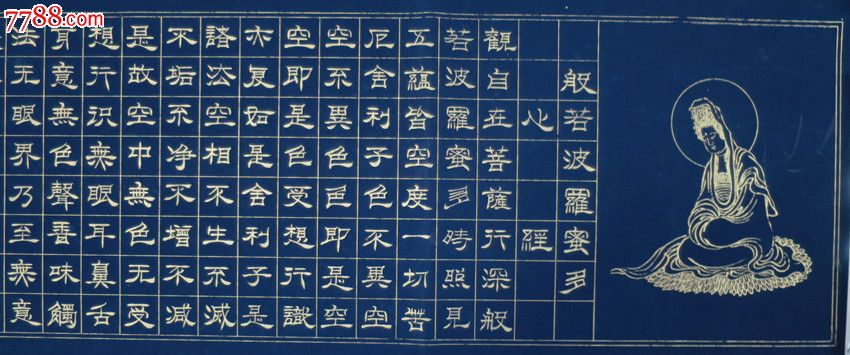 7788.com
中国收藏热线
般若波羅蜜多
心經
觀自在菩薩行深般
若波羅蜜多時照見
五蘊皆空度一切苦
厄舍利子色不異空
空不異色色即是空
空即是色受想行識
亦复如是舍利子是
諸法空相不生不滅
不垢不净不增不減
是故空中無色无受
想行识無眼耳鼻舌
身意無色聲香味觸
法无眼界乃至無意